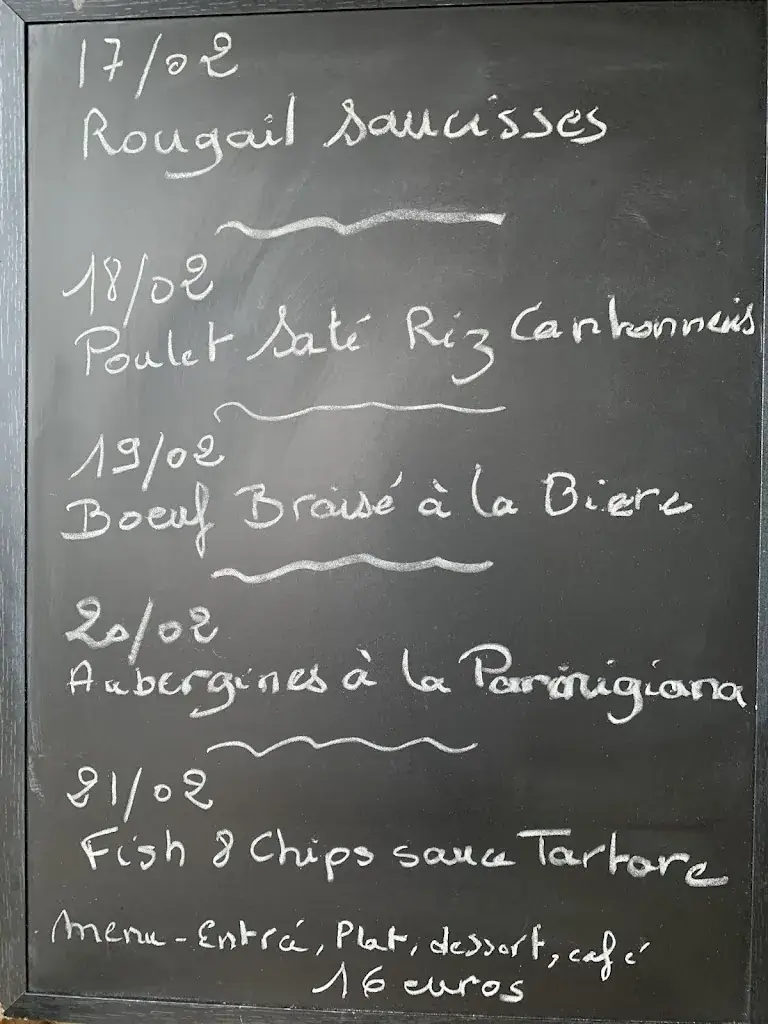 17/02
Rougail Saucisses
18/02
Poulet Saté Riz Cantonnais
19/02
Boeuf Braisé à la Biere
20/02
Aubergines à la Parmigiana
21/02
Fish & Chips sauce Tartare
Menu - Entrée, Plat, dessert, café
16 euros